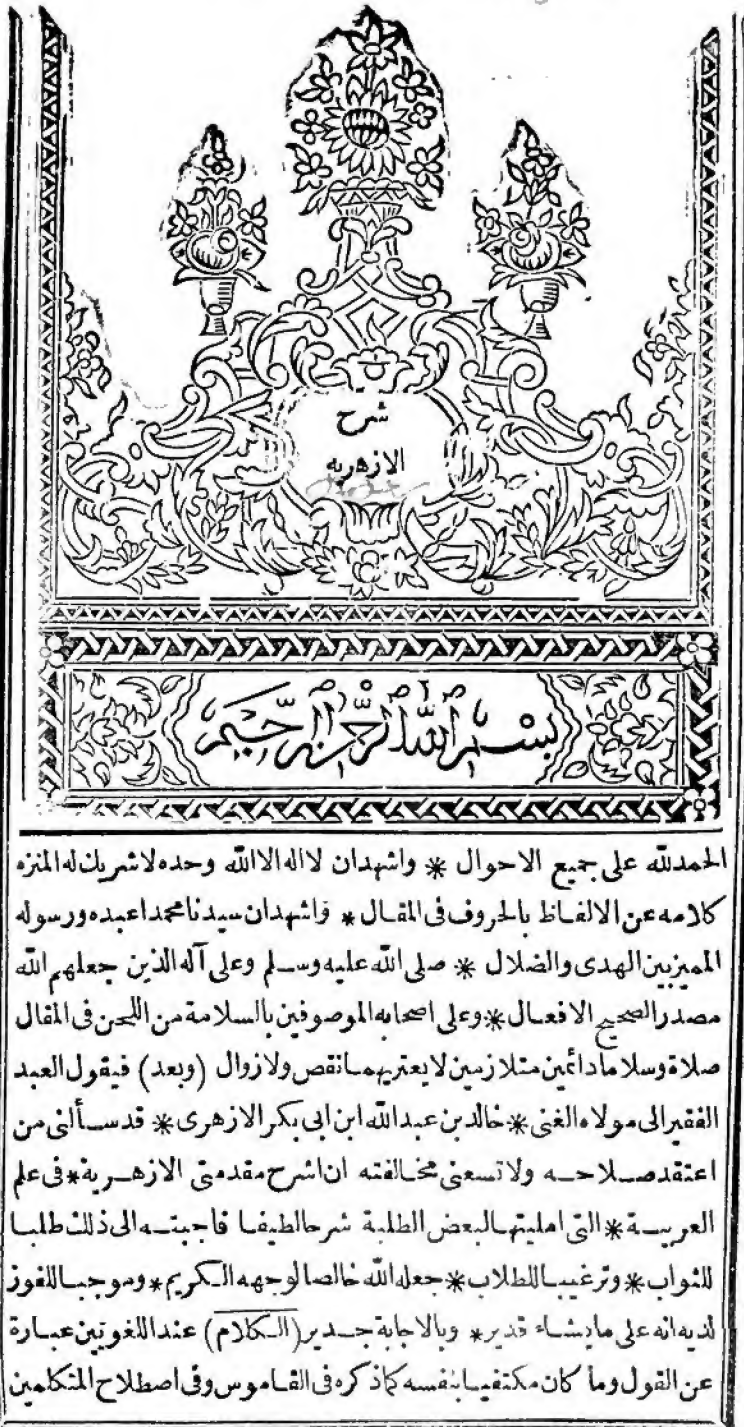 شرح
الازهريه
بسم الله الرحمن الرحيم
الحمد لله على جميع الاحوال * واشهد ان لا اله الا الله وحده لا شريك له المنزه
كلامه عن الالفاظ بالحروف فى المقال * واشهد ان سيدنا محمدا عبده ورسوله
المميز بين الهدى والضلال * صلى الله عليه وسلم وعلى آله الذين جعلهم الله
مصدر الصحيح الافعال * وعلى اصحابه الموصوفين بالسلامة من اللحن فى المقال
صلاة وسلاما دائمين متلازمين لا يعتريهما نقص ولا زوال (وبعد) فيقول العبد
الفقير الى مولاه الغنى * خالد بن عبد الله ابن ابى بكر الازهرى * قد سألنى من
اعتقد صلاحه ولا تسعنى مخالفته ان اشرح مقدمتى الازهرية * فى علم
العربية * التى امليتها لبعض الطلبة شرحا لطيفا فاجبته الى ذلك طلبا
للثواب * وترغيبا للطلاب * جعله الله خالصا لوجهه الكريم * وموجبا للفوز
لديه انه على ما يشاء قدير * وبالاجابة جدير (الكلام) عند اللغويين عبارة
عن القول وما كان مكتفيا بنفسه كما ذكره فى القاموس وفى اصطلاح المتكلمين